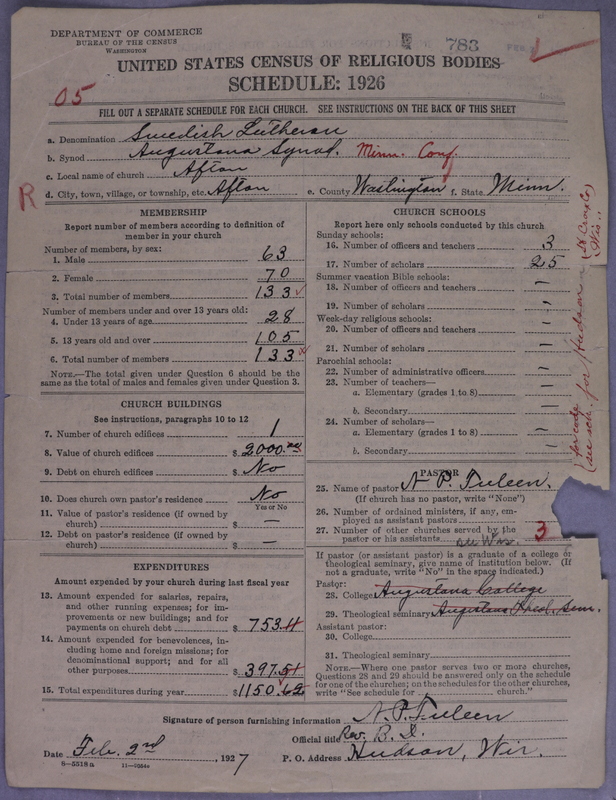 DEPARTMENT OF COMMERCE
BUREAU OF THE CENSUS
WASHINGTON
783
UNITED STATES CENSUS OF RELIGIOUS BODIES
SCHEDULE: 1926
05
FILL OUT A SEPARATE SCHEDULE FOR EACH CHURCH. SEE INSTRUCTIONS ON THE BACK OF THIS SHEET
a. Denomination Swedish Lutheran
b. Synod Augustana Synod. Minn. Conf.
c. Local name of church Afton
R
d. City, town, village, or township, etc. Afton e. County Washington f. State Minn.
MEMBERSHIP
Report number of members according to definition of
member in your church
Number of members, by sex:
1. Male 63
2. Female 70
3. Total number of members 133
Number of members under and over 13 years old:
4. Under 13 years of age 28
5. 13 years old and over 105
6. Total number of members 133
NOTE.—The total given under Question 6 should be the
same as the total of males and females given under Question 3.
CHURCH BUILDINGS
See instructions, paragraphs 10 to 12
7. Number of church edifices 1
8. Value of church edifices $ 2000.
9. Debt on church edifices $ No
10. Does church own pastor's residence No
Yes or No
11. Value of pastor's residence (if owned by
church) $ —
12. Debt on pastor's residence (if owned by
church) $ —
EXPENDITURES
Amount expended by your church during last fiscal year
13. Amount expended for salaries, repairs,
and other running expenses; for im-
provements or new buildings; and for
payments on church debt $ 753.11
14. Amount expended for benevolences, in-
cluding home and foreign missions; for
denominational support; and for all
other purposes $ 397.51
15. Total expenditures during year $ 1150.62
CHURCH SCHOOLS
Report here only schools conducted by this church
Sunday schools:
16. Number of officers and teachers 3
17. Number of scholars 25
Summer vacation Bible schools:
18. Number of officers and teachers —
19. Number of scholars —
Week-day religious schools:
20. Number of officers and teachers —
21. Number of scholars —
Parochial schools:
22. Number of administrative officers —
23. Number of teachers—
a. Elementary (grades 1 to 8) —
b. Secondary —
24. Number of scholars—
a. Elementary (grades 1 to 8) —
b. Secondary —
for code
(see sch. for Hudson (St Croix Co
Wis.)
PASTOR
25. Name of pastor N. P. Tuleen.
(If church has no pastor, write "None")
26. Number of ordained ministers, if any, em-
ployed as assistant pastors
27. Number of other churches served by the
pastor or his assistants 3
If pastor (or assistant pastor) is a graduate of a college or
theological seminary, give name of institution below. (If
not a graduate, write "No" in the space indicated.)
Pastor:
28. College Augustana College
29. Theological seminary Augustana Theol. Sem.
Assistant pastor:
30. College
31. Theological seminary
NOTE.—Where one pastor serves two or more churches,
Questions 28 and 29 should be answered only on the schedule
for one of the churches; on the schedules for the other churches,
write "See schedule for church."
Signature of person furnishing information N. P. Tuleen
Official title Rev.
Date Feb. 2nd, 1927 P. O. Address Hudson, Wis.
8—5518a 11—9054a